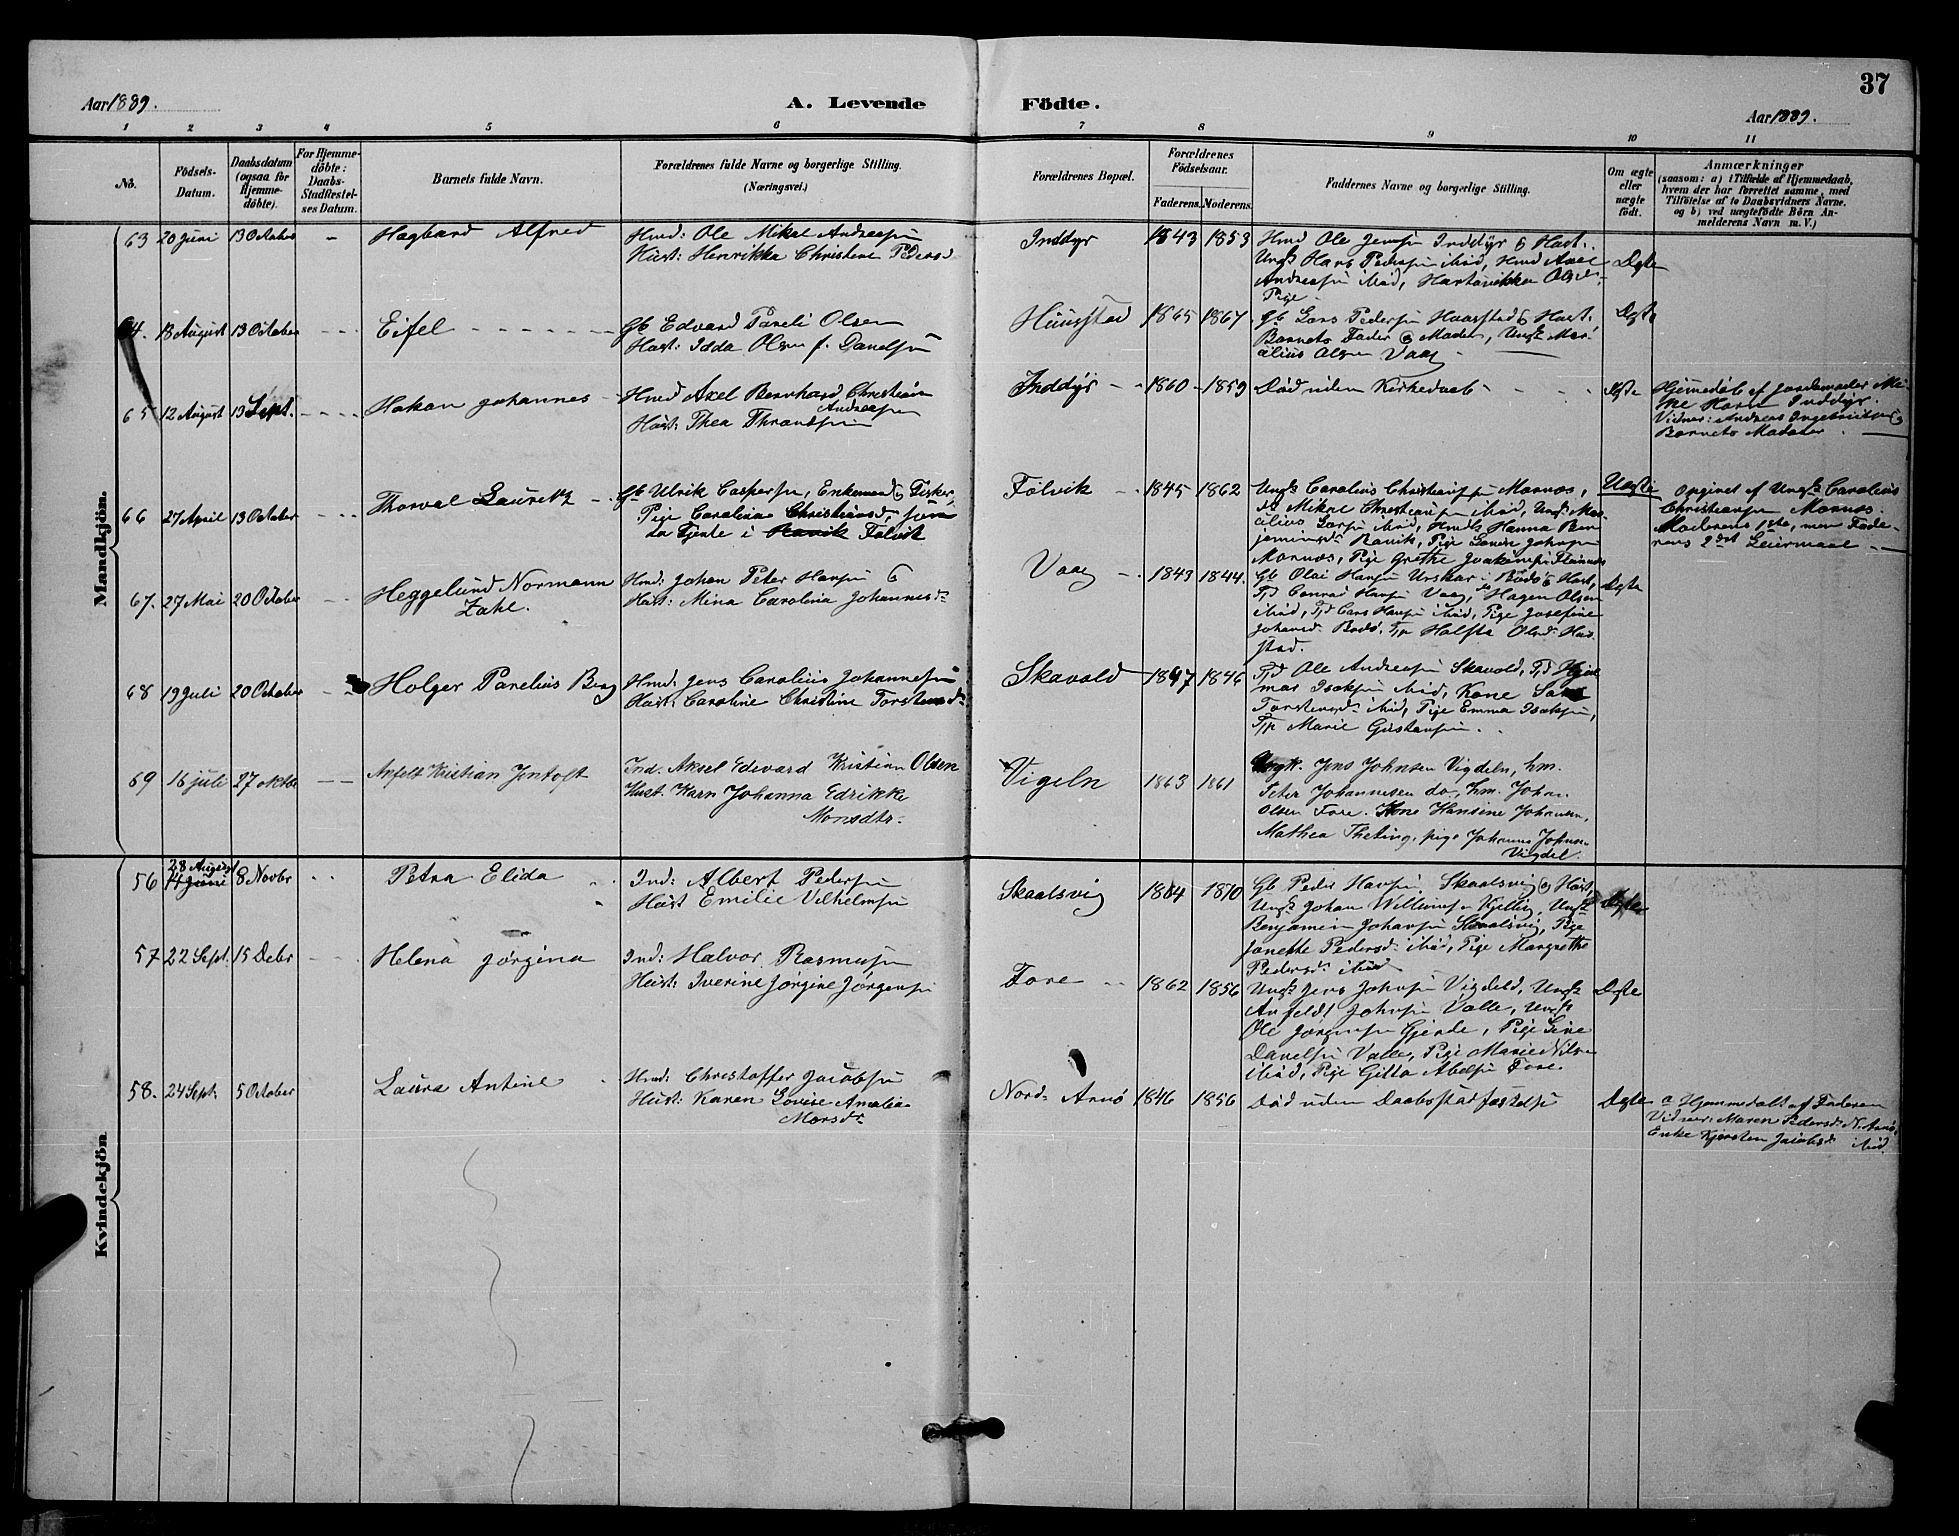 37
Aar 1889.
A. Levende Födte.
Aar 1889.
1 2 3 4 5 6 7 8 9 10 11
No.
Födsels-Datum.
Daabsdatum (ogsaa for Hjemme-döbte).
For Hjemme-döbte: Daabs-Stadfæstel-ses Datum.
Barnets fulde Navn.
Forældrenes fulde Navne og borgerlige Stilling.
(Næringsvei.)
Forældrenes Bopæl.
Forældrenes Födselsaar.
Faderens. Moderens.
Faddernes Navne og borgerlige Stilling.
Om ægte eller uægte födt.
Anmærkninger
(saasom: a) i Tilfælde af Hjemmedaab,
hvem der har forrettet samme, med
Tilföielse af to Daabsvidners Navne.
og b) ved uægtefödte Börn An-
melderens Navn m. V.)
Mandkjön.
63 20 Juni 13 October - Hagbard Alfred
Hmd: Ole Mikal Andreasen
Hust: Henrikka Christine Pedersd
Inddyr 1843 1853
Hmd Ole Jensen Inddyr & Hust.
Ungk Hans Pedersen ibid, Hmd Axel
Andreasen ibid,
Pige
Ægte
64. 13 August 13 October Eifel
Gb Edvard Pareli Olsen
Hust: Idda Olsen f. Danelsen
Huusstad 1865 1867
Gb Lars Pedersen Haarstad & Hust.
Barnets Fader & Moder, Ungk Mar-
cilius Olsen Vaag
Ægte
65 12 August 13 Sept. Hakon Johannes
Hmd Axel Bernhard Christian
Andreasen
Hust: Thea Thrandsen
Inddyr 1860 1859
Død uden Kirkedaab
Ægte
Hjemmedøb af Jordemoder
Horn Inddyr.
Vidner: Andreas Ingebrigtsen &
Barnets Moder
66 27 April 13 October Thorval Lauritz
Gb Ulrik Caspersen, Enkemand & Fisker
Pige Carolina Christiansd, som
da tjente i Følvik
Følvik 1845 1862
Ungk Carolius Christiansen Mornæs,
Mikal Christiansen ibid, Ungk Mar-
cilius Larsen ibid, Hanna Ben-
jaminsd Pige Johnsen
Mornæs, Pige Grethe Joakimsen
Uægte
Opgivet af Ungk Carolius
Christiansen Mornæs.
Moderens 1ste, men Fade-
rens 2det Leiermaal
67. 27 Mai 20 October Heggelund Normann
Zahl.
Hmd: Johan Peter Hansen &
Hust: Mina Carolina Johannesd
Vaag 1843 1844.
Gb Olai Hansen i Bodø & Hust,
Conrad Hansen Vaag, Hagen Olsen
ibid, Hansen ibid, Pige Josefine
Johansd Bodø, Olsd Hus-
stad.
Ægte
68 19 Juli 20 October Holger Parelius Berg
Hmd: Jens Carolius Johannesen
Hust: Caroline Christine Torstensd
Skavold 1847 1846
Ole Andreasen Skavold, Hjel-
mar Isaksen ibid, Kone
Torstensd ibid, Pige Emma Isaksen,
Marie Gustavsen.
69 16 juli 27 oktbr Anfelt Kristian Jentoft
Ind. Aksel Edevard Kristian Olsen
Hust. Karn Johanna Edrikke
Monsdtr.
Vigeln 1863 1861
Ungk. Jens Johnsen Vigdeln, hm.
Peter Johannesen do., hm. John
Olsen Fore. Kone Hansine Johnsen,
Mathea Theting, pige Johanna Johnsen
Vigdel.
Kvindekjön.
56 28 August 14 Juni 8 Novbr Petra Elida
Ind: Albert Pedersen
Hust Emilie Vilhelmsen
Skaalsvig 1864 1870
Gb Peder Hansen Skaalsvig & Hust,
Ungk Johan Willumsen Kjelling, Ungk
Benjamin Johansen Skaalsvig, Pige
Janette Pedersd ibid, Pige Margrethe
Pedersd ibid
Ægte
57 22 Sept. 15 Debr Helena Jørgina
Ind: Halvor Rasmusen
Hust: Iverine Jørgine Jørgensen
Fore 1862 1856
Ungk Jens Johnsen Vigdeld, Ungk
Anfeldt Johnsen Valle, Ungk
Ole Jørgensen Gjerde, Pige Sine
Danelsen Valle, Pige Marie Nils
ibid, Pige Gitta Abelsen Fore.
Ægte
58. 24 Sept. 5 October Laura Antine
Hmd: Christoffer Jacobsen
Hust: Karen Lovise Amalia
Morsdtr
Nord Arnø 1846 1856
Død uden Daabsstadfæstelse
Ægte
a Hjemmedøbt af Faderen
Vidner: Maren Pedersd N. Arnø,
Enke Kjersten Jacobsd ibid.